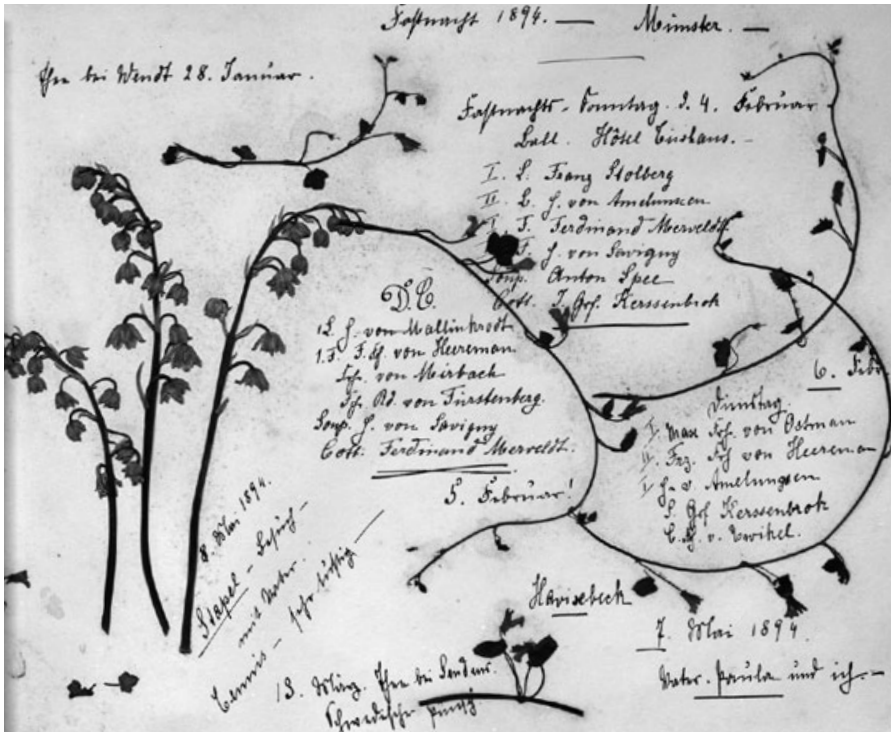 Fastnacht 1894. — Münster. —
Thee bei Wendt 28. Januar.
Fastnachts-Sonntag. d. 4. Februar
Ball. Hôtel
I. L. Franz Stolberg
II. L. H. von Amelunxen
I F. Ferdinand Merveldt.
F. H. von Savigny
Soup. Anton Spee
Cott. J. Grf. Kerssenbrok
D. C.
1L. H. von Mallinkrodt
1.F. F. Fh. von Heereman
Frh. von Mirbach
Frh. Rd. von Fürstenberg.
Soup. H. von Savigny
Cott. Ferdinand Merveldt.
5. Februar!
6. Febr
Dienstag.
I. Max Frh. von Ostman
II. Frz. Frh von Heereman
I H. v. Amelungsen
S. Grf Kerssenbrok
C. Fh. v. Twickel.
8. Mai 1894.
Stapel - Besuch -
mit Vater.
Tennis - sehr lustig -
Havixbeck
7. Mai 1894.
Vater. Paula und ich. -
13. März. Thee bei Senden.
Schwedische Punsch